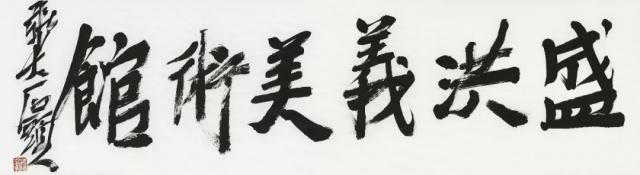 盛洪義美術館